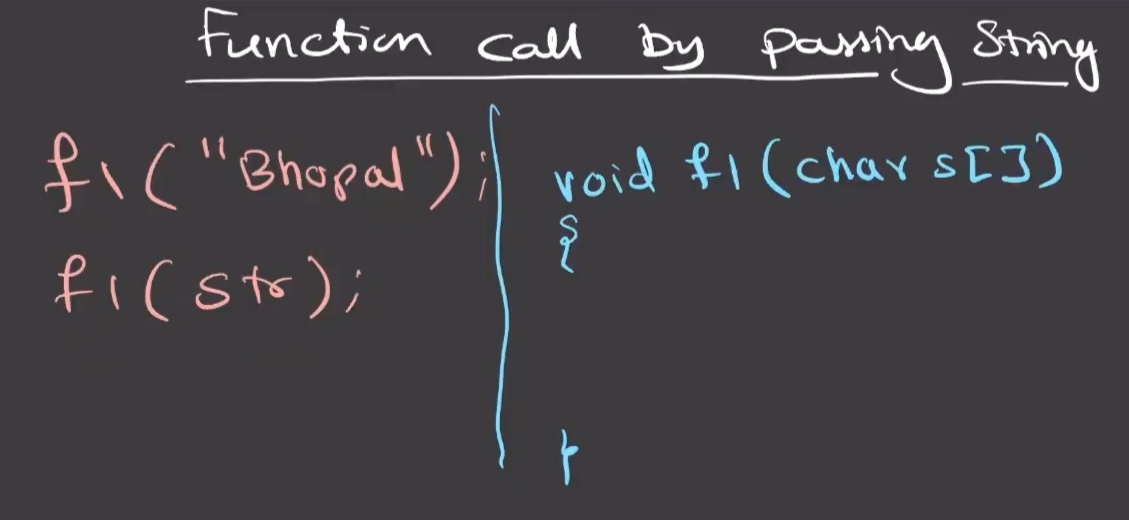 Function call by passing String
f1("Bhopal");
f1(str);
void f1(char s[])
{
}